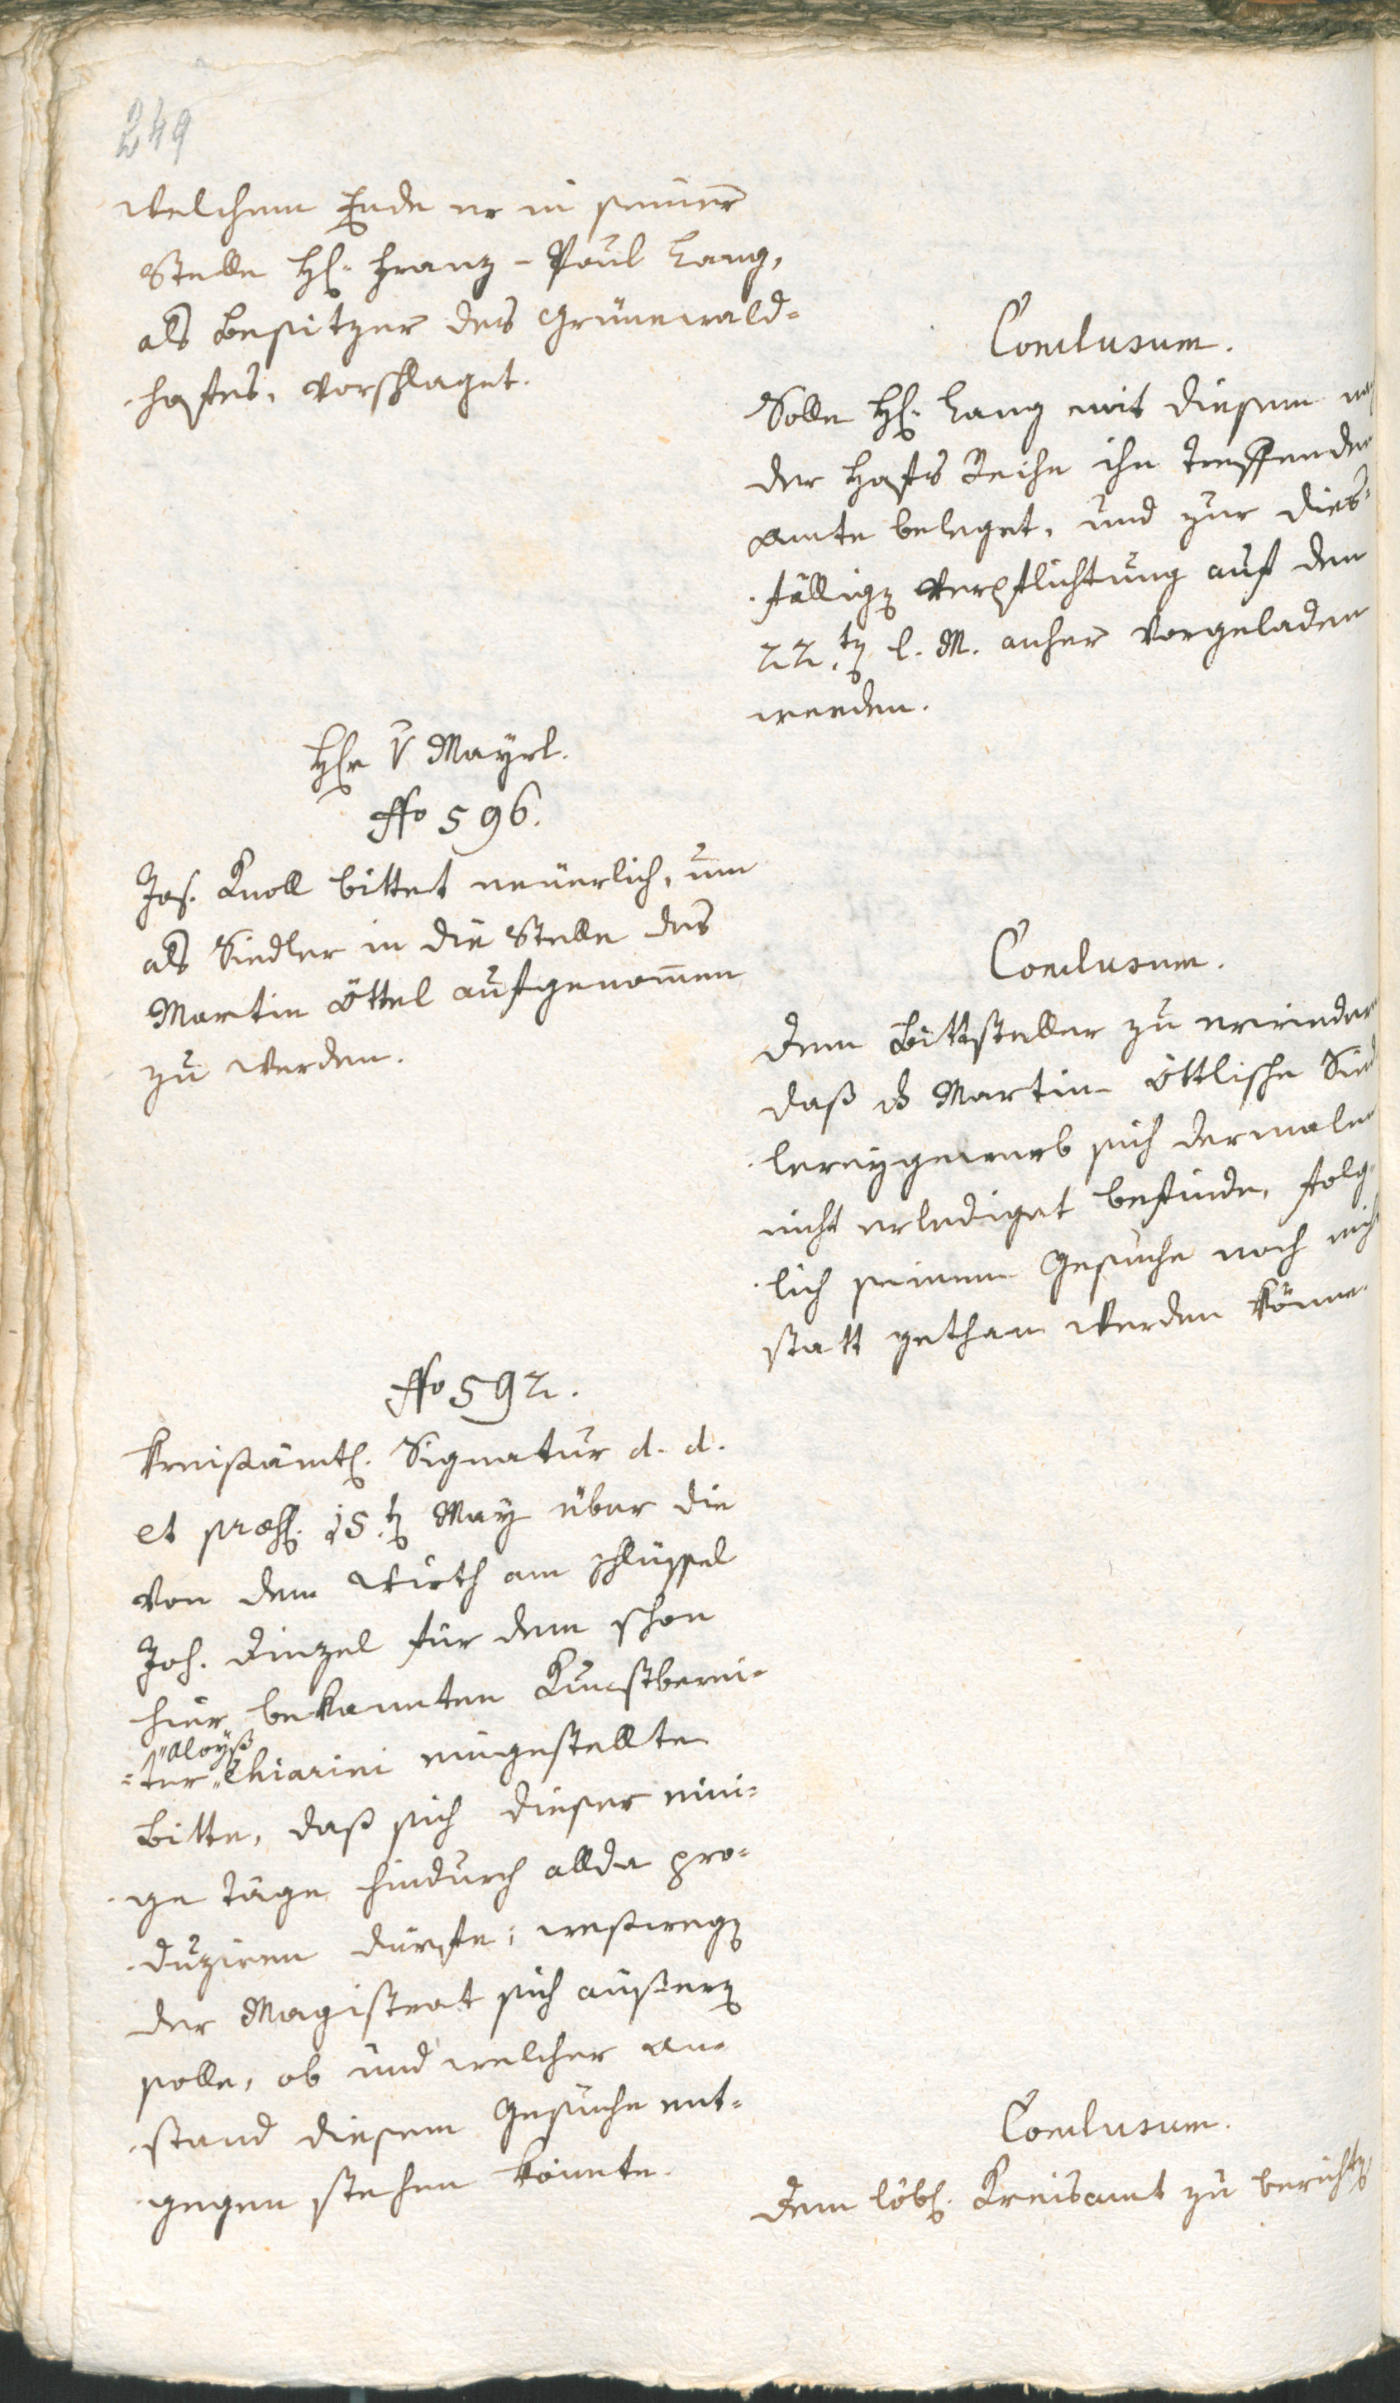 249
welchem Ende er in seiner
Stelle H. Franz-Paul Lang,
als Besitzer des Grünewald-
hofes, vorschlaget.
Conclusum.
Solle H. Lang mit diesem
der Hofs Reihe ihn treffenden
Amte beleget, und zur dies-
fälligen Verpflichtung auf den
22.ten l. M. anher vorgeladen
werden.
Hr v Mayrl.
No 596.
Jos. Knoll bittet neuerlich, um
als Siedler in die Stelle des
Martin Öttel aufgenommen
zu werden.
Conclusum.
Dem Bittsteller zu erwiedern
daß das Martin Öttlische Sied
lereygewerb sich dermalen
nicht erlediget befinde, folg-
lich seinem Gesuche noch nicht
statt gethan werden könne.
No 592.
Kreisämtl. Signatur d. d.
et præs. 15.ten May über die
von dem Wirth am Schlüssel
Joh. Dinzel für dem schon
hier bekannten Kunstberei-
=ter "Aloyß Chiarini eingestellte
Bitte, daß sich dieser eini-
ge Täge hindurch allda pro-
duziren dürfte; weßwegen
der Magistrat sich äußern
solle, ob und welcher An-
stand diesem Gesuche ent-
gegen stehen könnte.
Conclusum.
Dem löbl. Kreisamt zu berichten